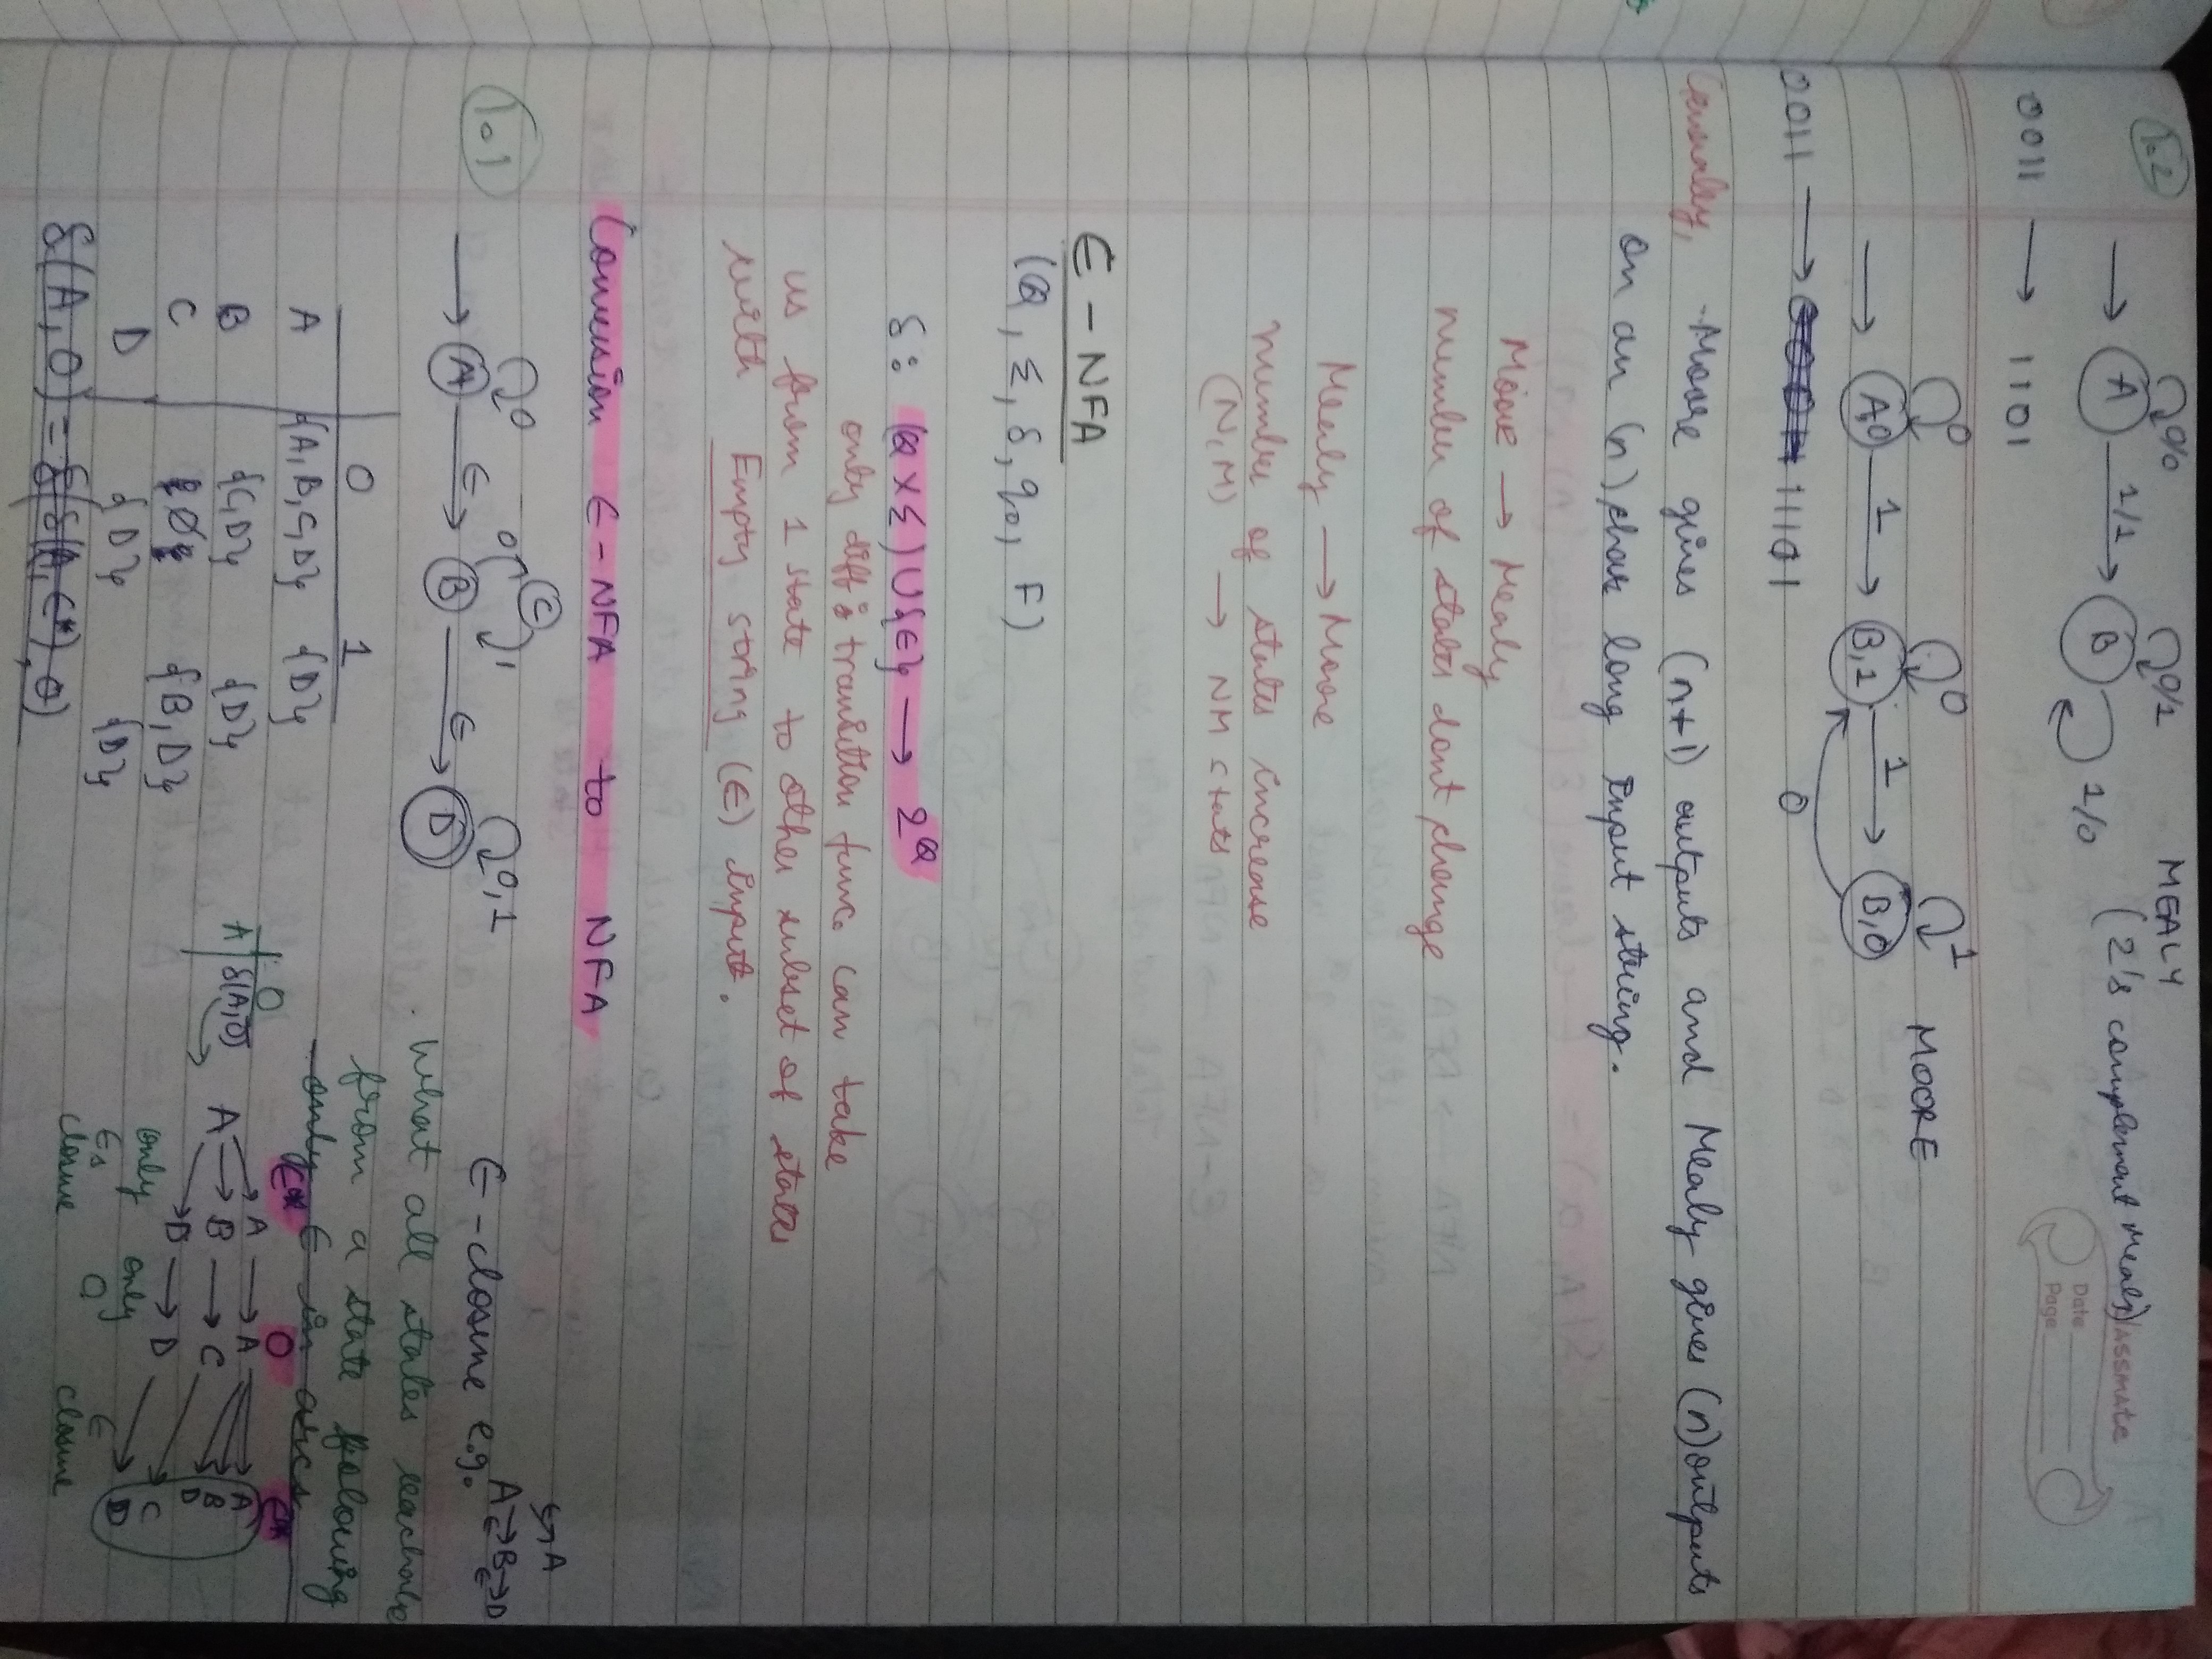 MEALY
(2's complement mealy)
ASSMATE
Date
Page
1.2
→ A 0/0 1/1 → B 0/1 1/0
0011 → 1101
MOORE
→ A,0 0 1 → B,1 0 1 → B,0 1
0
0011 → 11101
Generally, -Moore gives (n+1) outputs and Mealy gives (n) outputs
on an (n) char long input string.
Moore → Mealy
number of states dont change
Mealy → Moore
number of states increase
(N, M) → NM states
∈ - NFA
(Q, Σ, δ, q0, F)
δ: (Q × Σ) ∪ {∈} → 2^Q
only diff: transition func. can take
us from 1 state to other subset of states
with Empty string (∈) input.
Conversion ∈ - NFA to NFA
1.1
→ A 0 ∈ → B ∈ → D 0,1
0 C 1
∈ - closure e.g. A →∈ B →∈ D
↳ A
What all states reachable
from a state following
only ∈ in arcs
0 1
A {A,B,C,D} {D}
B {C,D} {D}
C ∅ {B,D}
D {D} {D}
0
A δ(A,0)
∈* 0 ∈*
A → A → A → A
B
D
A → B → C → C
A → D → D → D
only ∈s closure
only 0
∈ closure
δ(A,0) = δ(δ(A,∈*),0)